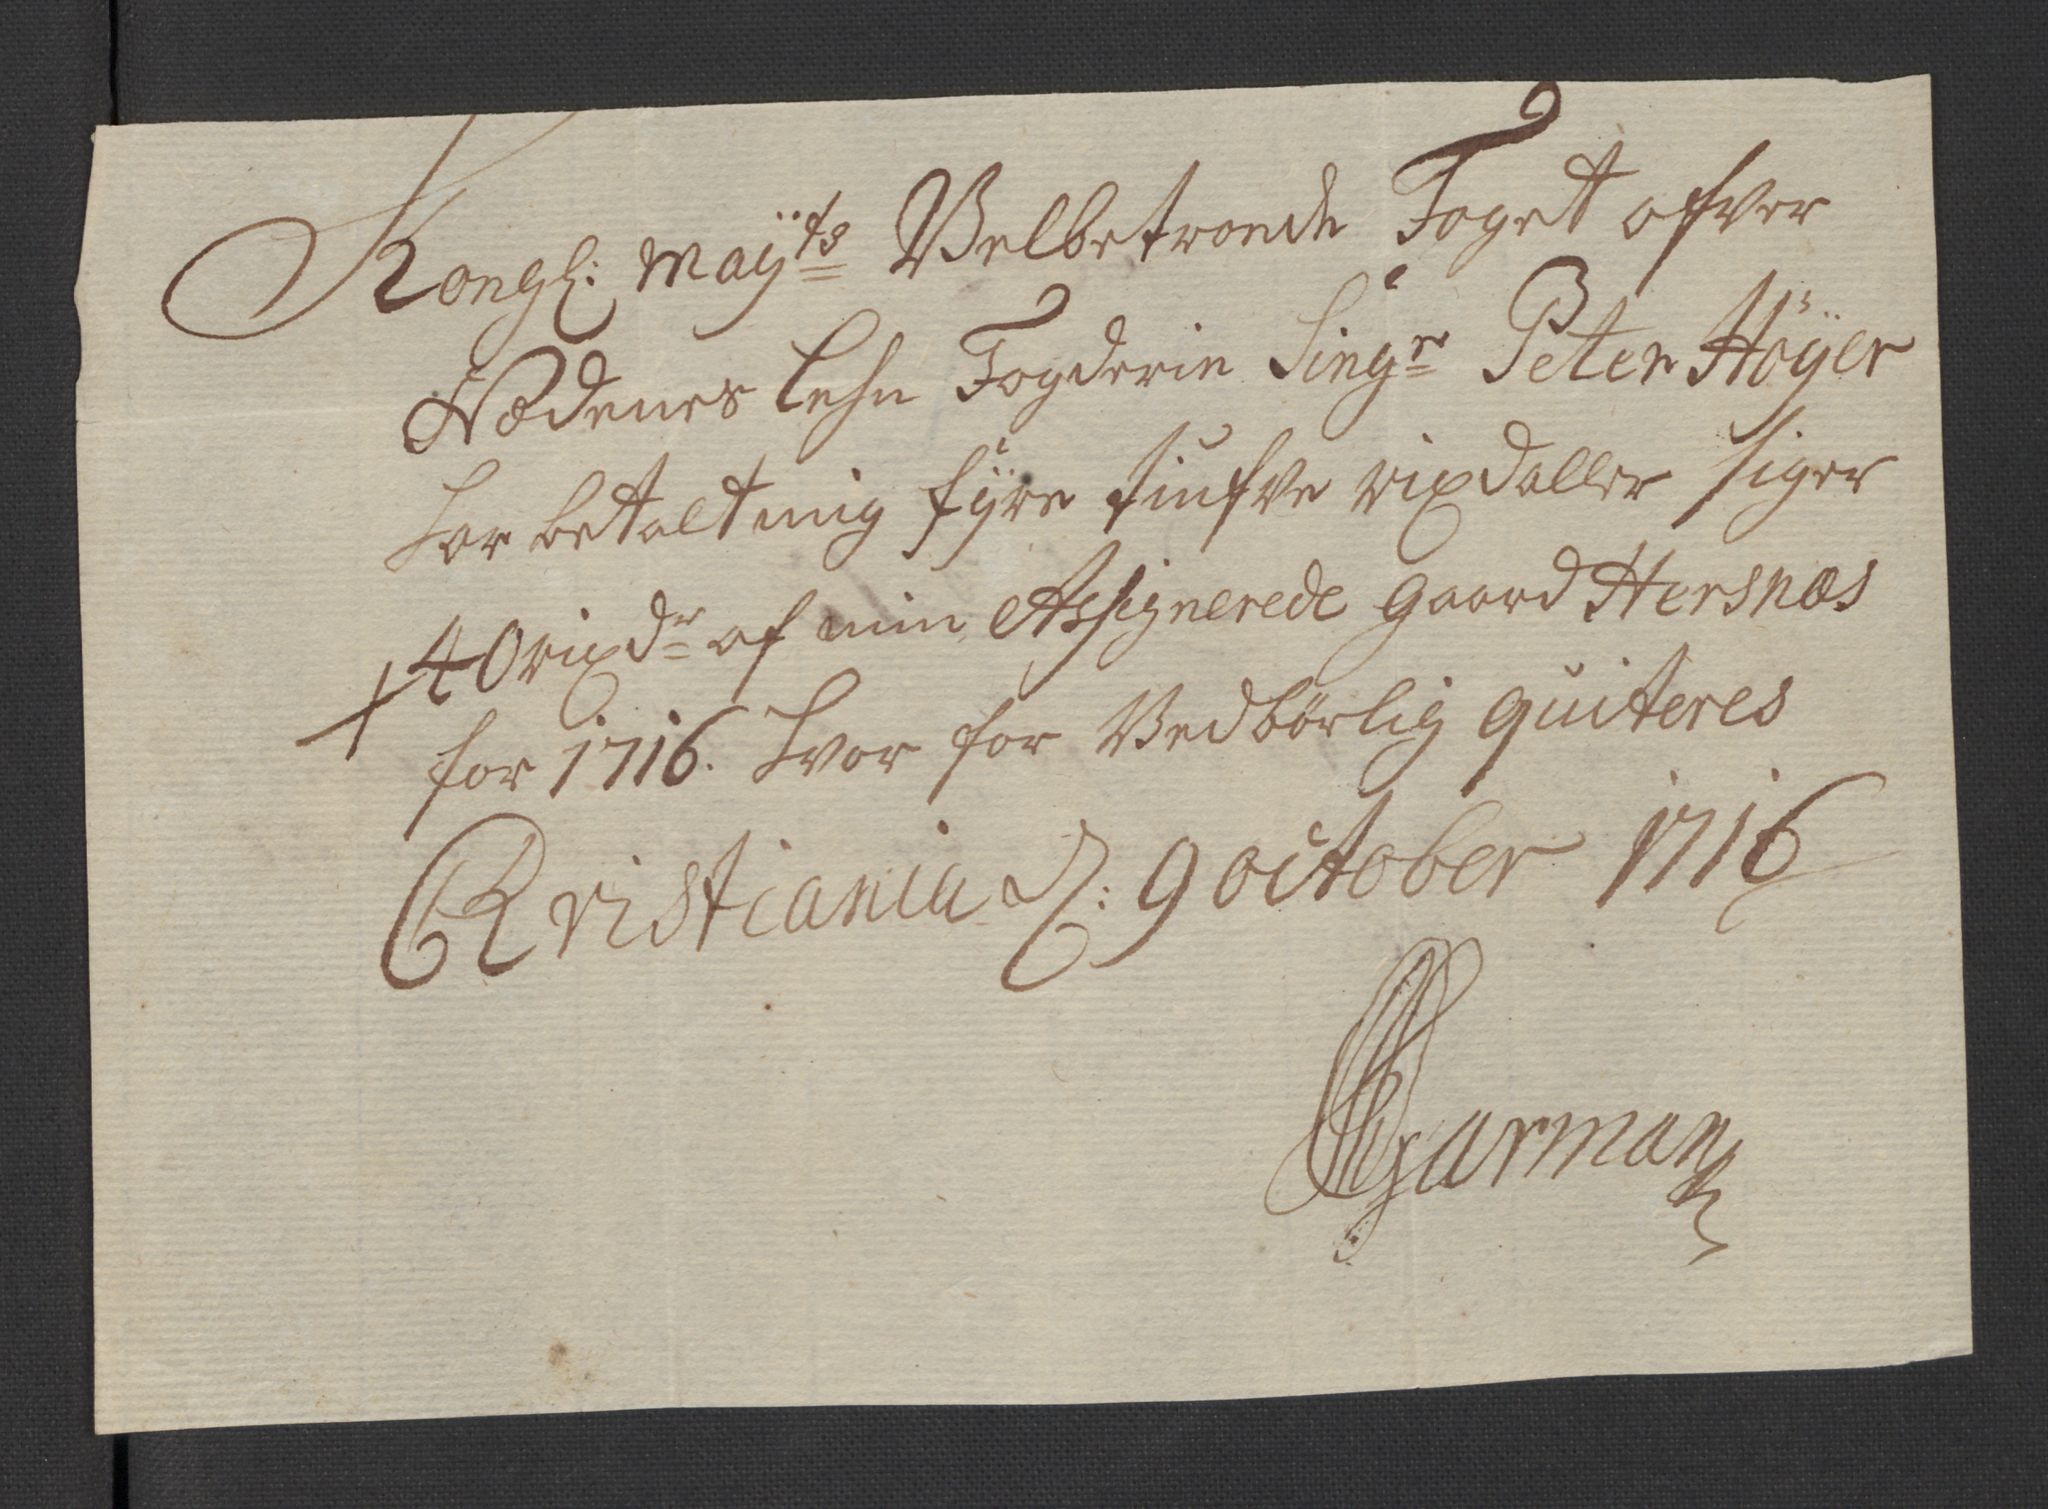 Kongl: Maÿts Velbetroede Foget ofver
Nædenes Lehn Fogderie Singr Peter Høÿer
har betalt mig fÿre tiufve rixdaller siger
+ 40 rixdr af min Assignerede gaard Hersnæs
for 1716. hvor for Vedbørlig quiteres
Christiania d: 9 october 1716
Garman